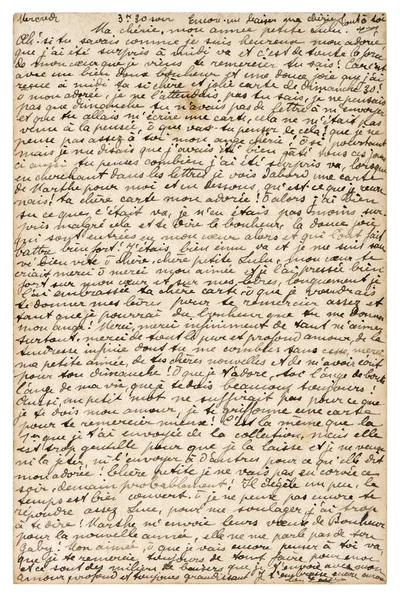 Mercredi 3h 30 soir Encore un baiser ma chérie, tout à toi
Ma chérie, mon aimée petite Lulu.
Oh! si tu savais comme je suis heureux mon adorée
que j'ai été surpris à midi va et c'est de toute la force
de mon cœur que je viens te remercier tu sais! Car c'est
avec un bien doux bonheur et une douce joie que j'ai
reçue à midi ta si chère et jolie carte de dimanche 30!
ô mon adorée, je ne l'attendais pas tu sais, je ne pensais
pas que dimanche tu n'avais pas de lettre à m'envoyer
et que tu allais m'écrire une carte, cela ne m'était pas
venue à la pensée, ô que vas-tu penser de cela! que je ne
pense pas assez à toi mon ange chérie! Ô si, pourtant
mais je me disais que j'avais été bien gâté tous ces jours
ci aussi tu penses combien j'ai été surpris va, lorsque
en cherchant dans les lettres je vois d'abord une carte
de Marthe pour moi et en dessous, qu'est ce que je
vais! ta chère carte mon adorée! Ô alors j'ai bien
su ce que c'était va, je n'en étais pas moins sur-
pris malgré cela et de dire le bonheur, la douce joie
qui sont entrés en mon cœur alors et qui l'ont fait
battre bien fort! J'étais bien ému va et je me suis sau-
vé bien vite! Ô chère, chère petite Lulu, mon cœur te
criait merci! ô merci mon aimée et je l'ai pressée bien
fort sur mon cœur et sur mes lèvres, longuement
j'ai embrassée ta chère carte! Ô que je voudrais
te donner mes pour te remercier assez et
tant que je pourrai du bonheur que tu me donnes
mon ange! Merci, merci infiniment de tant m'aimer
surtout, merci de tout le pur et profond amour, de la
tendresse infinie dont tu me combles sans cesse, merci
ma petite aimée, de tes chères nouvelles et de m'avoir écrit
pour ton dimanche! Ô que je t'adore, toi l'âme de
l'ange de ma vie, que je te dois beaucoup toujours!
Aussi, un petit mot ne suffirait pas pour ce que
je te dois mon amour, je te griffonne une carte
pour te remercier mieux! C'est la même que la
1ère que je t'ai envoyée de la collection, mais elle
est trop gentille pour que je la laisse et je ne veux
ni la jeter, ni l'envoyer à d'autres pour ce qu'elle dit
mon adorée! Chère petite je ne vais pas en corvée ce
soir, demain probablement! Il dégèle un peu, le
temps est bien couvert. Ô je ne peux pas encore te
répondre assez Luce, pour me soulager, j'ai trop
à te dire! Marthe m'envoie leurs vœux de Bonheur
pour la nouvelle année, elle ne me parle pas de ton
Gaby! Mon aimée, ô que je vais encore penser à toi va,
que je te remercie toujours de tout faire pour moi
et ce sont des milliers de baisers que je t'envoie avec mon
amour profond et toujours grandissant! Je t'embrasse encore